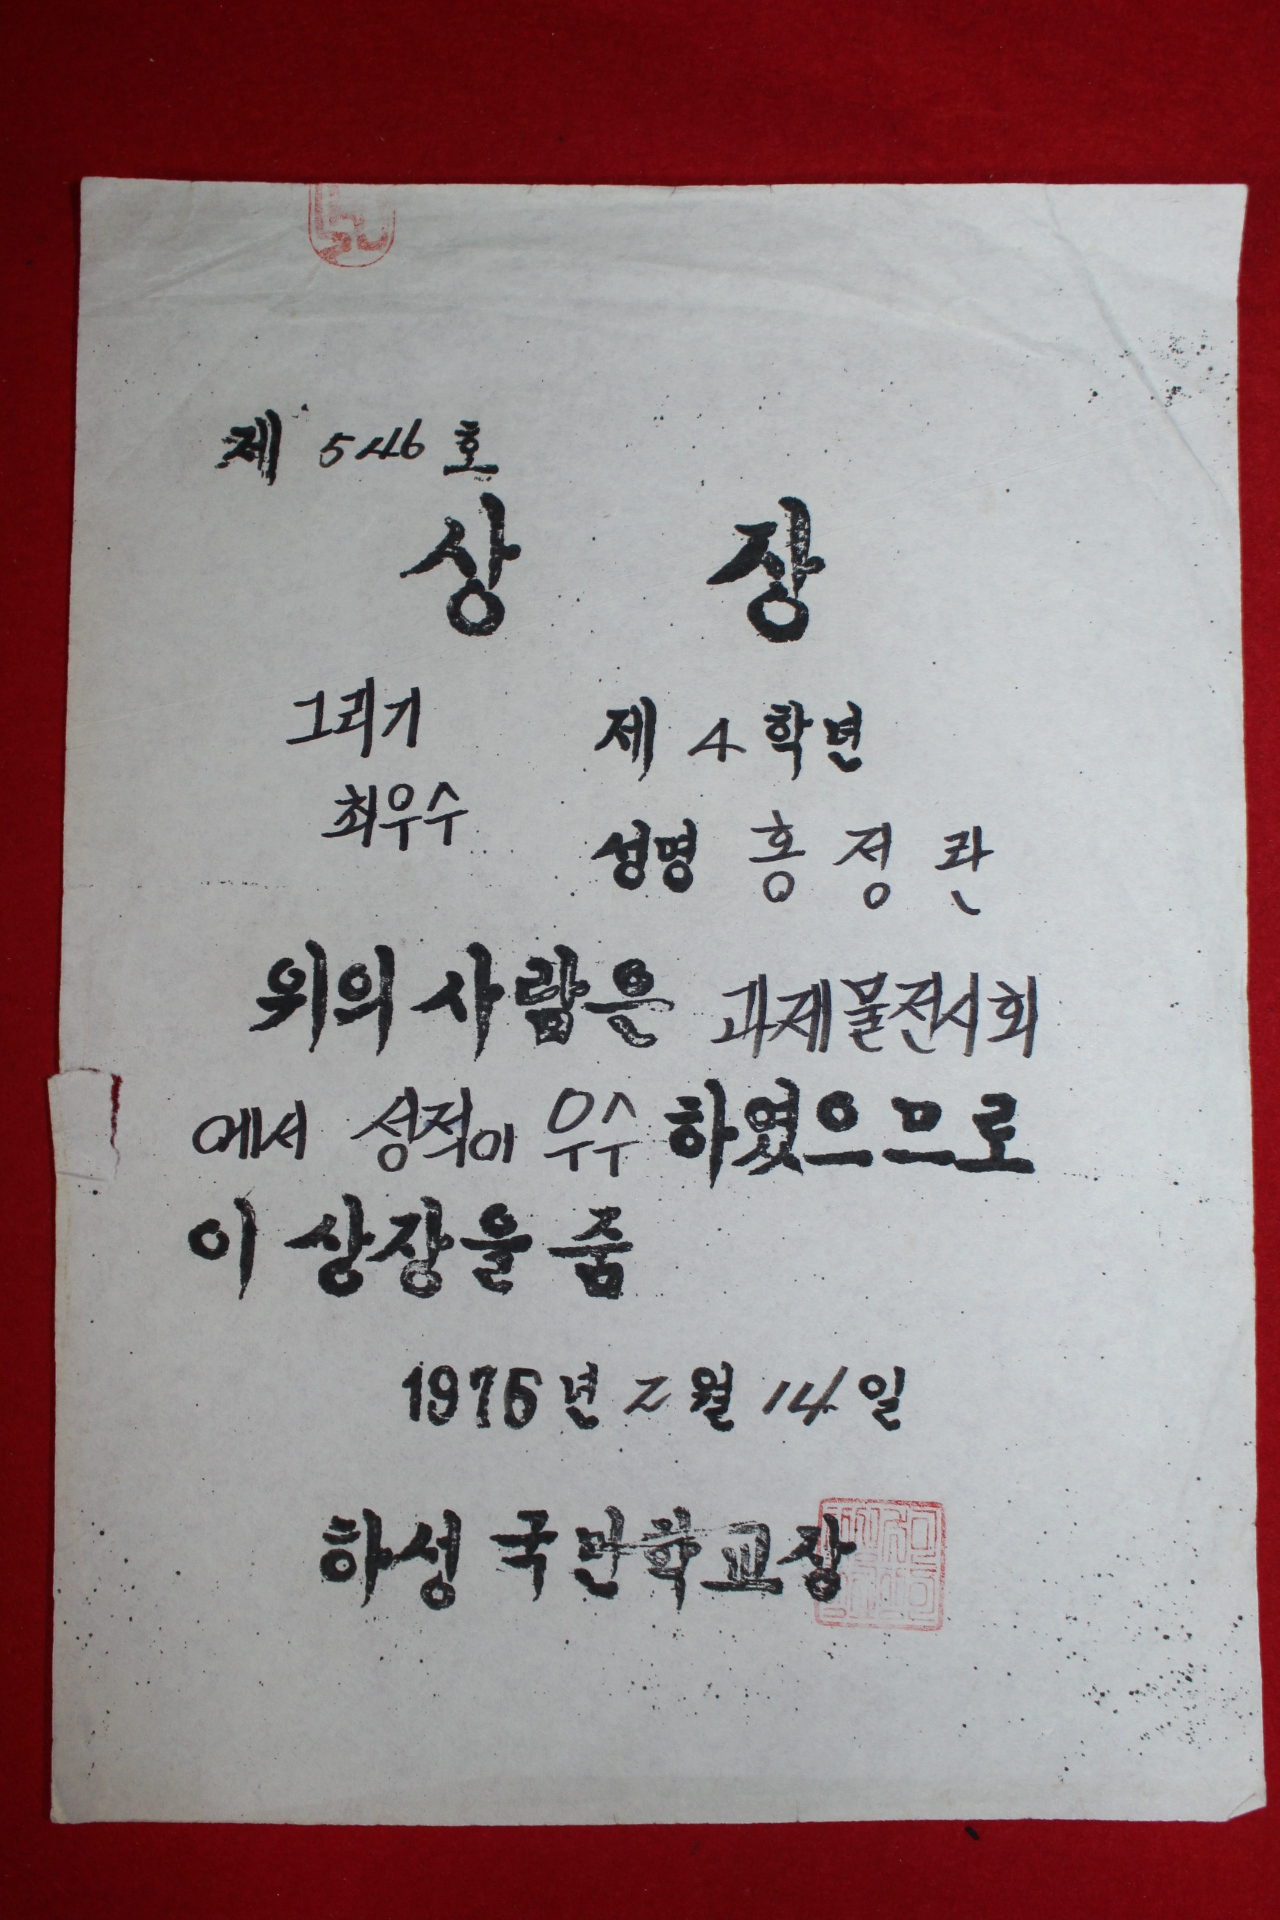 제 546 호
상 장
그리기 제 4 학년
최우수 성명 홍정란
위의 사람은 과제물전시회
에서 성적이 우수 하였으므로
이 상장을 줌
1975년 2월 14일
하성 국민학교장